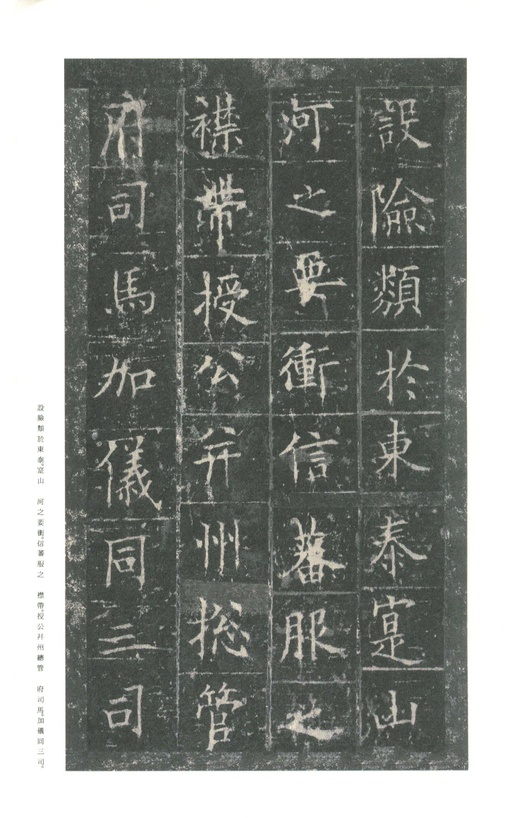 設險類於東秦寔山
河之要衝信蕃服之
襟帶授公并州総管
府司馬加儀同三司
設險類於東秦寔山　河之要衝信蕃服之　襟帶授公并州總管　府司馬加儀同三司